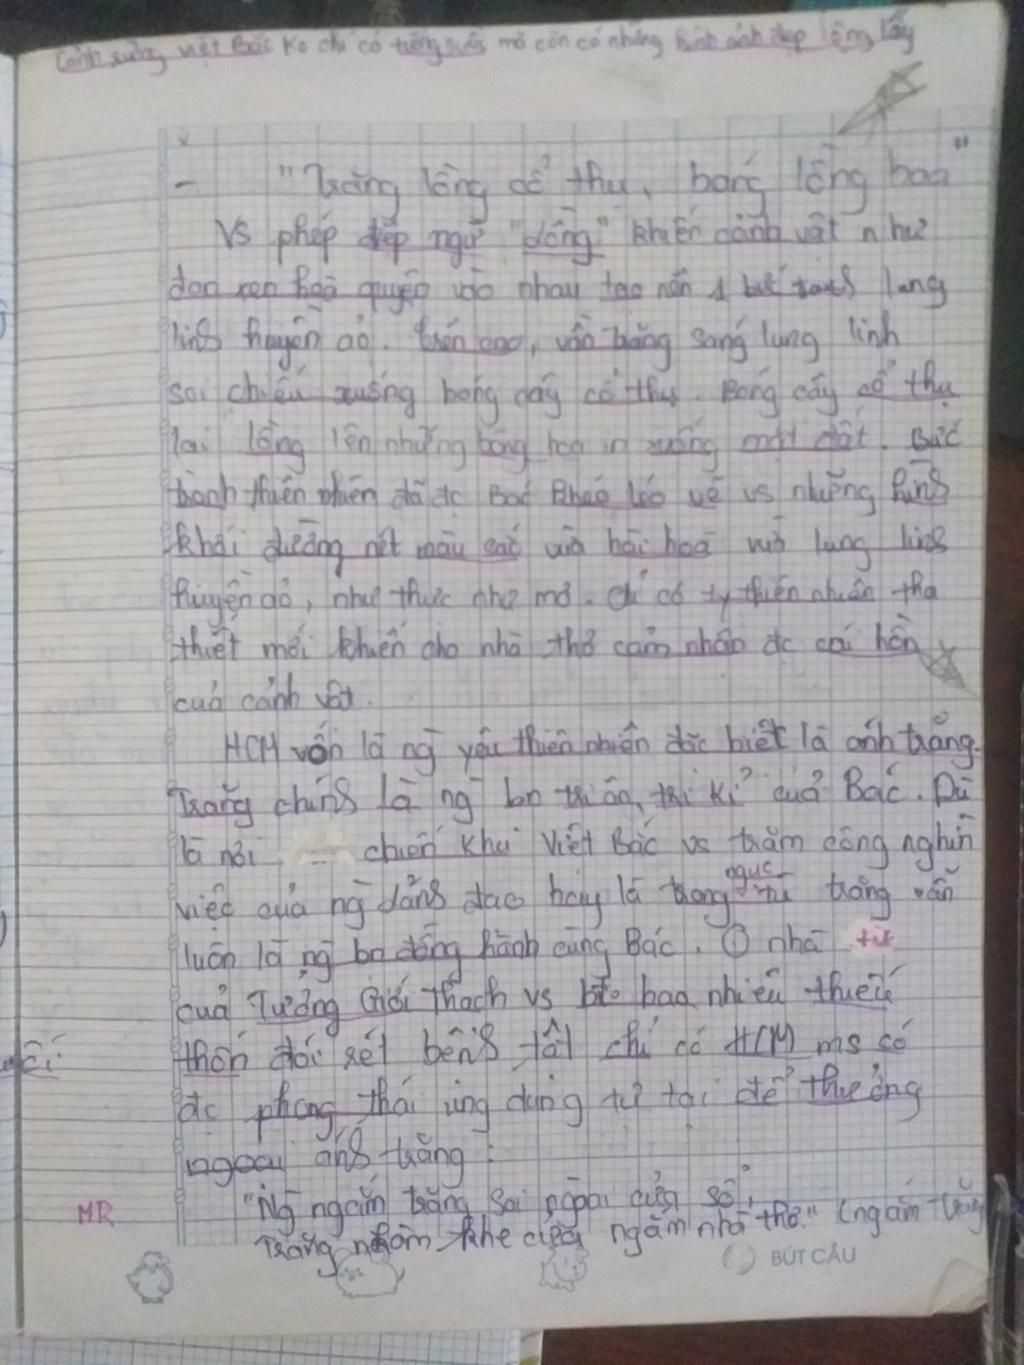 Cảnh rừng việt Bắc ko chỉ có tiếng suối mà còn có những hình ảnh đẹp lộng lẫy
- "Trăng lồng cổ thụ, bóng lồng hoa"
Vs phép điệp ngữ "lồng" khiến cảnh vật như
đan xen hoà quyện vào nhau tạo nên 1 bức tranh lung
linh huyền ảo. trên cao, vần trăng sáng lung linh
soi chiếu xuống bóng cây cổ thụ. Bóng cây cổ thụ
lại lồng lên những bông hoa in xuống mặt đất. Bức
tranh thiên nhiên đã đc Bác khéo léo vẽ vs những hình
khối đường nét màu sắc vừa hài hoà vừa lung linh
huyền ảo, như thực như mơ. chỉ có ty thiên nhiên tha
thiết mới khiến cho nhà thơ cảm nhận đc cái hồn
của cảnh vật.
HCM vốn là ng yêu thiên nhiên đặc biệt là ánh trăng.
Trăng chính là ng bn tri ân, tri kỉ của Bác. Dù
là nơi chiến khu Việt Bắc vs trăm công nghìn
việc của ng lãnh đạo hay là trong ngục tù trăng vẫn
luôn là ng bn đồng hành cùng Bác. Ở nhà tù
của Tưởng Giới Thạch vs bao nhiêu thiếu
thốn đói rét bệnh tật chỉ có HCM ms có
đc phong thái ung dung tự tại để thưởng
ngoại ánh trăng:
MR "Ng ngắm trăng soi ngoài cửa sổ,
Trăng nhòm khe cửa ngắm nhà thơ." (ngắm trăng
BÚT CÂU